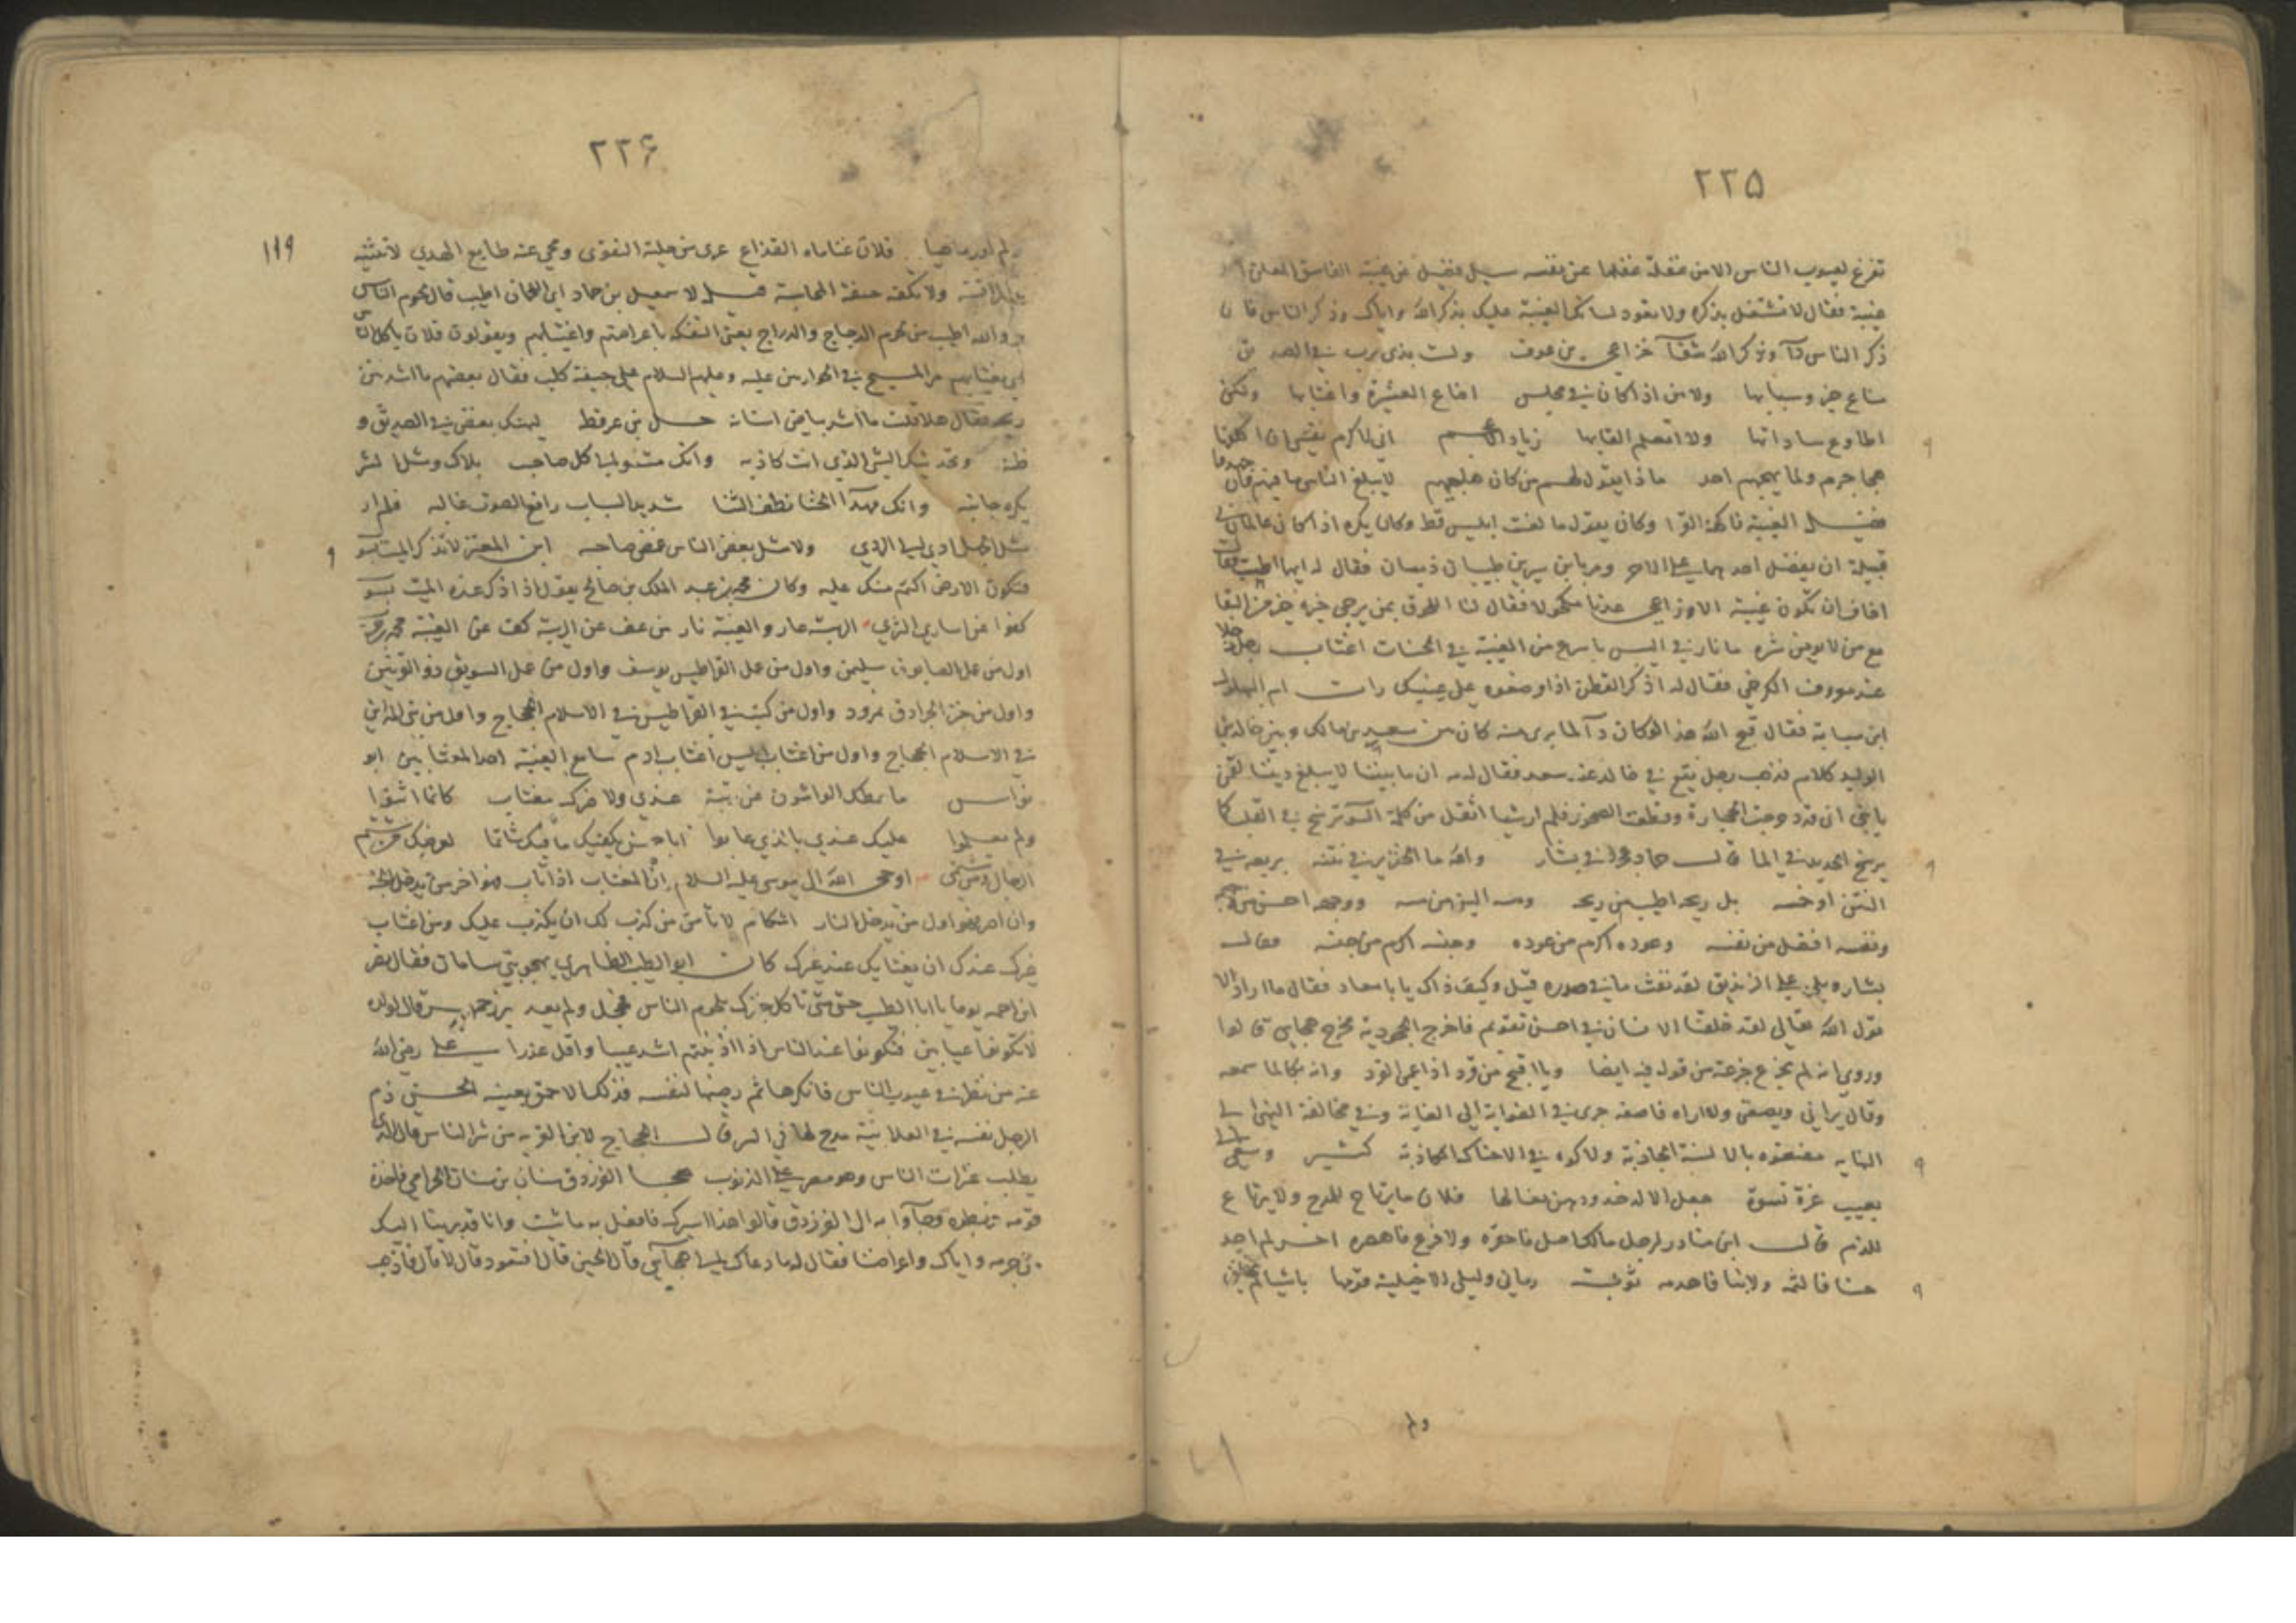 ٢٢٥
تفرغ لعيوب الناس الا من غفلة غفلها عن نفسه سيل فضيل عن غيبة الفاسق المعلن
غيبة فقال لا تشتغل بذكره ولا تعود لسانك الغيبة عليك بذكر الله واياك وذكر الناس فان
ذكر الناس دآ وذكر الله شفآ خزاعي بن عوف ولست بذي نرب في الصديق
مناع خير وسبابها ولا من اذا كان في مجلس اضاع العشيرة واغتابها ولكن
اطاوع ساداتها ولا اتعلم القابها زياد الاعجم اني لاكرم نفسي ان اكلفها
هجا جرم ولما يهجهم احد ماذا يقول لهم من كان هاجيهم لا يبلغ الناس ما فيهم وان جهدوا
فضيل الغيبة فاكهة القرا وكان يقول ما لعنت ابليس قط وكان يكره اذا كان عالمان في
قبيلة ان يفضل احدهما على الاخر ومر بابن سيرين طبيبان ذميان فقال له ايهما اطب فقال
اخاف ان تكون غيبة الاوزاعي عدنا مكحولا فقال لنا اللحوق بمن يرجى خيره خير من البقا
مع من لا يومن شره ما النار في اليبس باسرع من الغيبة في الحسنات اغتاب رجل رجلا
عند معروف الكرخي فقال له اذكر القطن اذا وضعوه على عينيك رات ام البهلول
ابن سبابة فقال قبح الله هذا لو كان دآ لما برى منه كان بين سعد بن مالك وبين خالد بن
الوليد كلام فذهب رجل يقع في خالد عند سعد فقال له مه ان ما بيننا لا يبلغ ديننا لقمن
يا بني اني قد دوجت الحجارة وقطعت الصخور فلم ار شيا اثقل من كلمة السو ترسخ في القلب كما
يرسخ الحديد في الما قال حماد عجرد في بشار والله ما الخنزير في نتنه بربعه في
النتن او خمسه بل ريحه اطيب من ريحه ومسه الين من مسه ووجهه احسن من وجهه
ونفسه افضل من نفسه وعوده اكرم من عوده وجنسه اكرم من جنسه فقال
بشار ويلي على الزنديق لقد نفث ما في صدره قيل وكيف ذاك يا با معاذ فقال ما اراد الا
قول الله تعالى لقد خلقنا الانسان في احسن تقويم فاخرج الجحود به مخرج هجاي قالوا
وروي انه لم يجزع جزعه من قوله فيه ايضا ويا اقبح من قرد اذا عمي القرد وانه بكا لما سمعه
وقال يراني ويصفني ولا اراه فاصفه جرى في الغواية الى الغاية وفي مخالفة النهى الى
النهايه مضغوه بالالسنة الجاذبة ولاكوه في الاحناك الكاذبة كثير وسعى الي
بعيب عزة نسوة جعل الاله خدودهن نعالها فلان ما يرتاح للمدح ولا يرتاع
للذم قال ابن مناذر لرجل مالك اصل فاحقره ولا فرع فاهصره اخر لم اجد
حسنا فالثمه ولا بنا فاهدمه توبت رماني وليلى الاخيلية قومها باشيا لم تخلق
ولم
٢٢٦
١١٩
ولم ادر ما هيا فلان غناماه القذاع عرى من حلية التقوى ومحي عنه طابع الهدي لا تثنيه
يد المراقبة ولا تكفه خيفة المحاسبة قيل لاسمعيل بن حماد اي اللحمان اطيب قال لحوم الناس
هي والله اطيب من لحوم الدجاج والدراج يعني التفكه باعراضهم واغتيابهم ويقولون فلان ياكل الناس
اي يغتابهم مر المسيح في الحوارين عليه وعليهم السلام على جيفة كلب فقال بعضهم ما اشد نتن
ريحه فقال هلا قلت ما اشد بياض اسنانه حسل بن عرفطة ليهنك بغض في الصديق و
ظنة وتحديثك الشي الذي انت كاذبه وانك مشنو الى كل صاحب بلاك ومثل الشر
يكره جانبه وانك مهدآ الخنا نطف النثا شديد السباب رافع الصوت غالبه فلم ار
مثل الجهل ادي الى الردي ولا مثل بعض الناس غمض صاحبه ابن المعتز لا تذكر الميت بسو
فتكون الارض اكتم منك عليه وكان محمد بن عبد الملك بن صالح يقول اذا ذكر عنده الميت بسو
كفوا عن اسارى الثرى الريبة عار والغيبة نار من عف عن الريبة كف عن الغيبة محمد بن حرب
اول من عمل الصابون سليمن واول من عمل القراطيس يوسف واول من عمل السويق ذو القرنين
واول من خبز الجرادق نمرود واول من كتب في القراطيس في الاسلام الحجاج واول من بنى المداين
في الاسلام الحجاج واول من اغتاب ابليس اغتاب ادم سامع الغيبة احد المغتابين ابو
نواس ما حطك الواشون عن رتبة عندي ولا ضرك مغتاب كانما اثنوا
ولم يعلموا عليك عندي بالذي عابوا
الرجال ومن شتمي اوحى الله الى موسى عليه السلام ان المغتاب اذا تاب فهو اخر من يدخل الجنة
وان اصر فهو اول من يدخل النار اشكام لا تامن من كذب لك ان يكذب عليك ومن اغتاب
غيرك عندك ان يغتابك عند غيرك كان ابو الطيب الطاهري يهجو بني سامان فقال نصر
ابن احمد يوما يا ابا الطيب حتى متى تاكل خبزك بلحوم الناس فخجل ولم يعد بزرجمهر بن قال لولده
لا تكونوا عيابين فتكونوا عند الناس اذا اذنبتم اشد عيبا واقل عذرا علي رضي الله
عنه من نظر في عيوب الناس فانكرها ثم رضيها لنفسه فذلك الاحمق بعينه الحسن ذم
الرجل نفسه في العلانية مدح لها في السر قال الحجاج لابن القريه من شر الناس قال الذي
يطلب عثرات الناس وهو مصر على الذنوب هجا الفرزدق سنان بن سنان الحرامي فاخذه
قومه فربطوه وجآوا به الى الفرزدق فقالوا هذا اسيرك فافعل به ما شئت وانا قد برينا اليك
من جرمه واياك واعراضنا فقال له ما دعاك الى هجآي قال الحين قال افتعود قال لا قال فاذهب